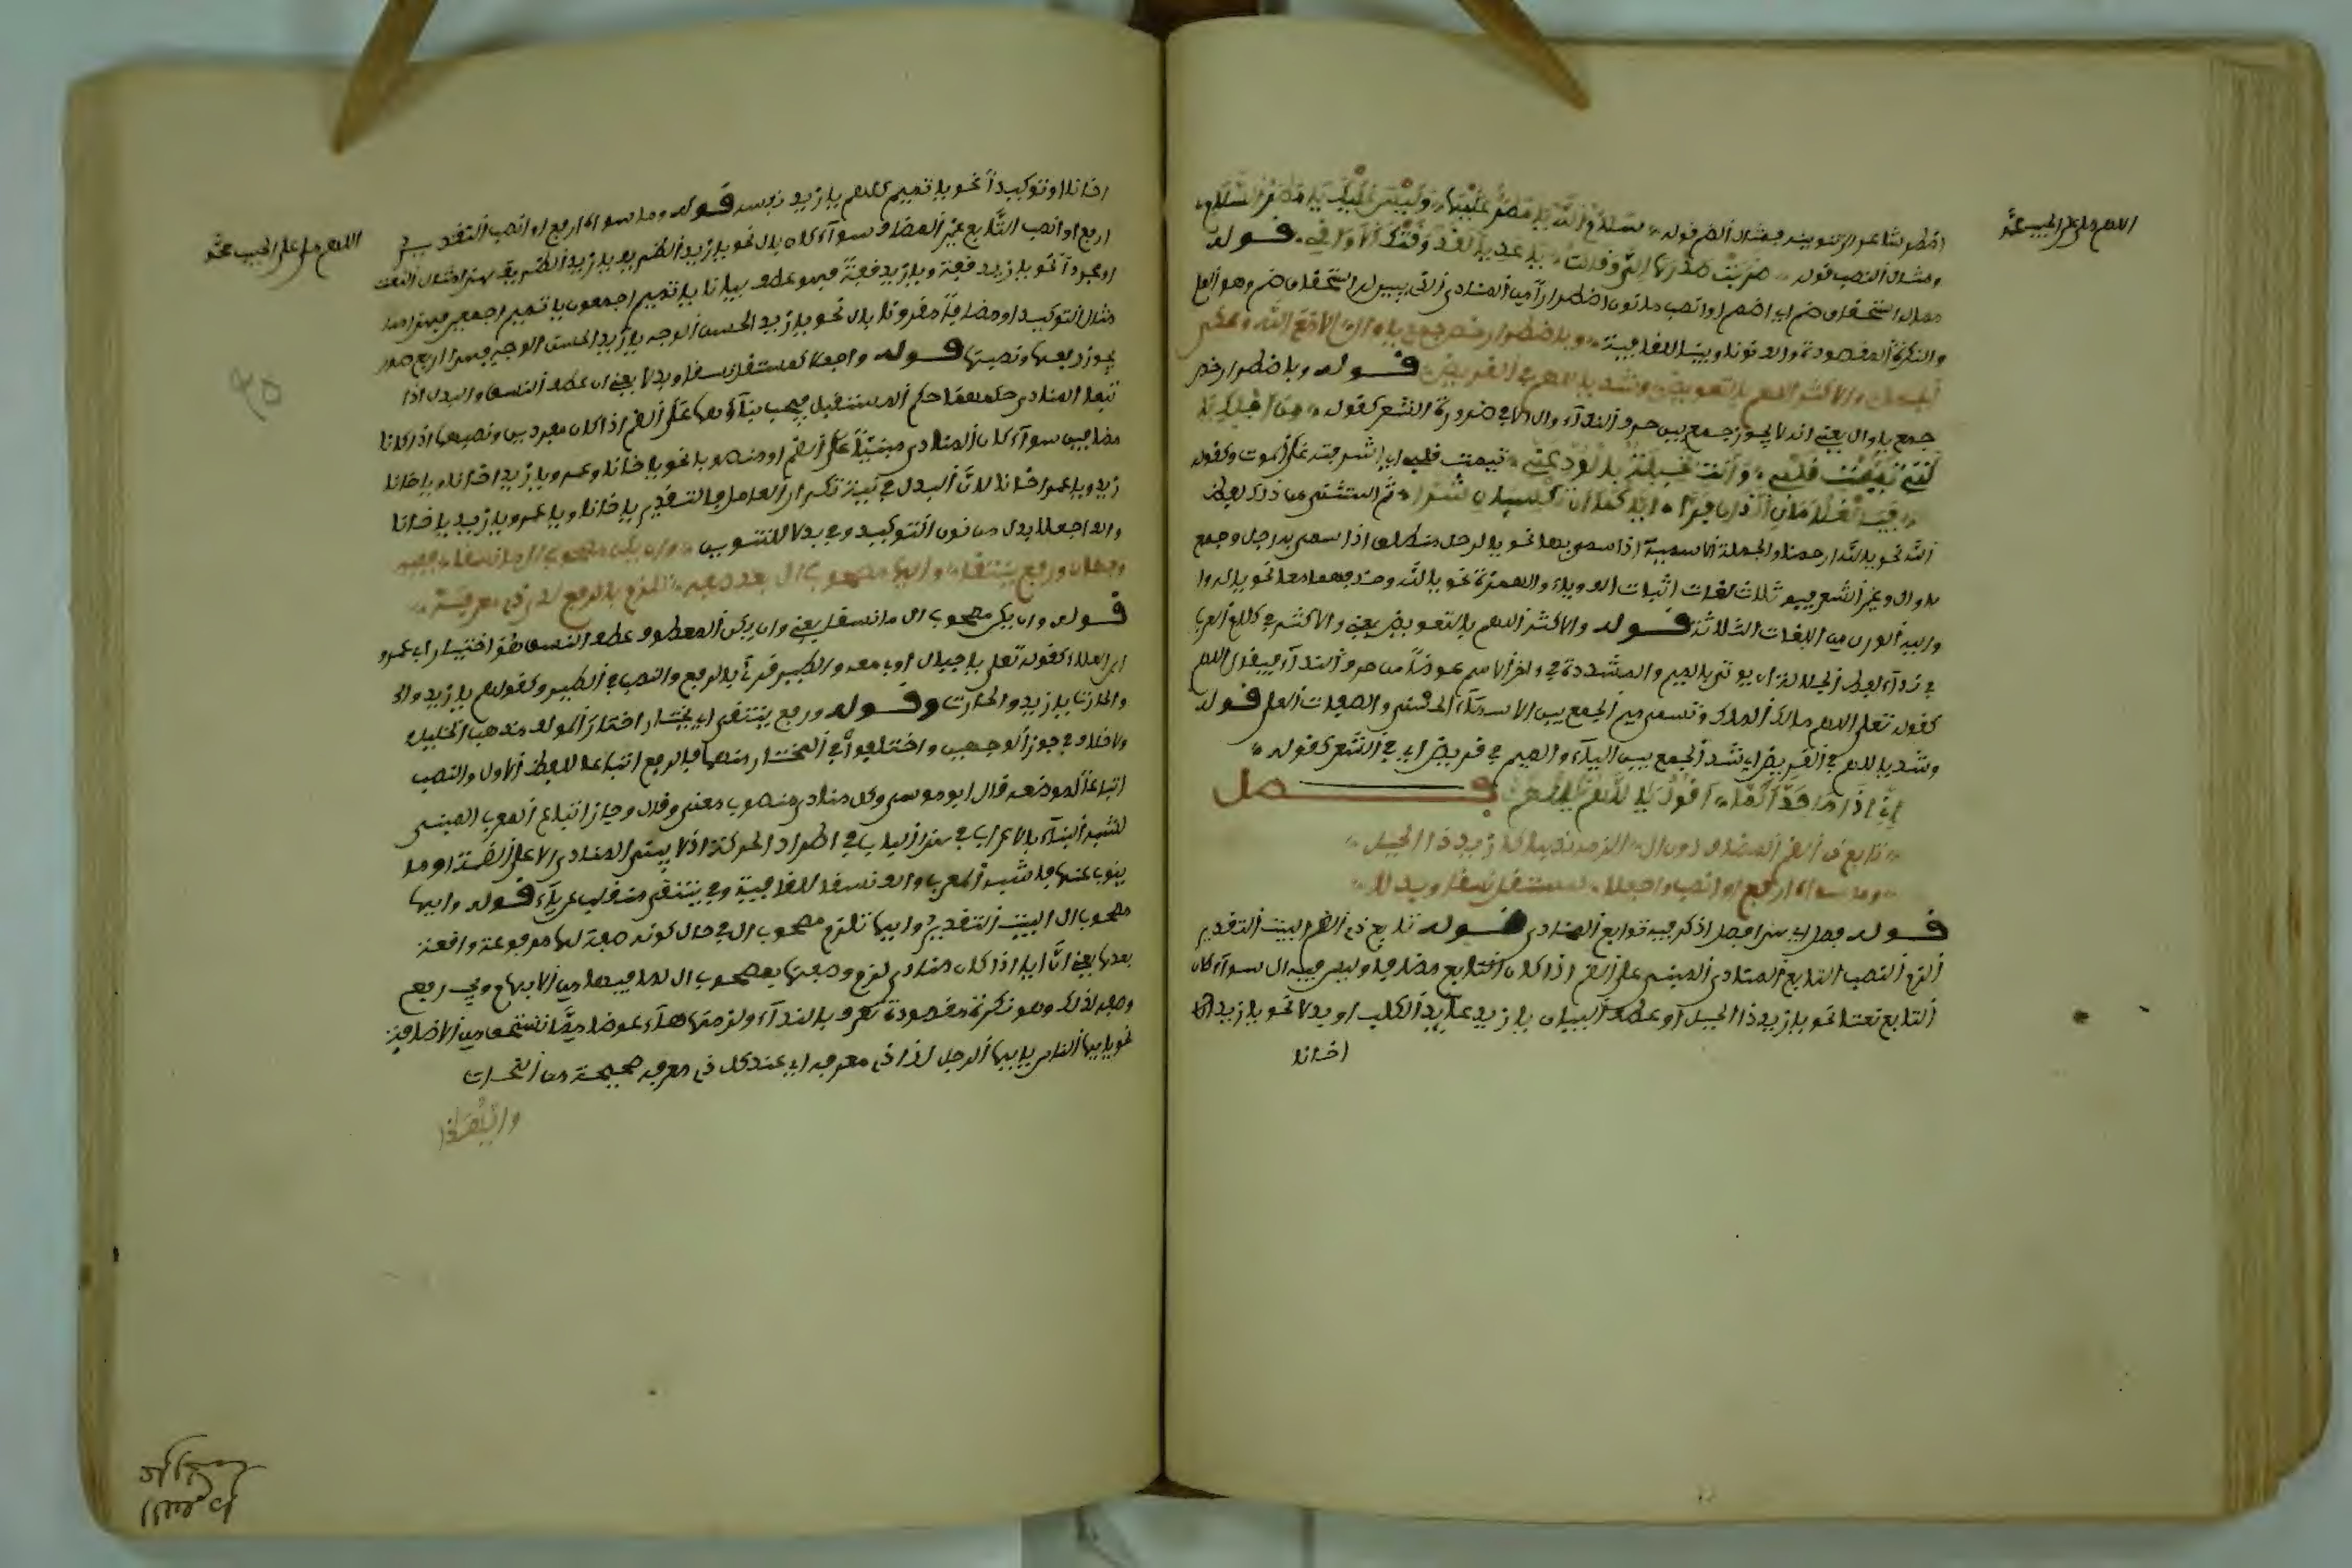 اللهم صل على الحبيب محمد
اضطر شاعر الى تنوينه فمثال الضم قوله سلام الله يا مطر عليها وليس عليك يا مطر السلام
ومثال النصب قوله ضربت صدرها الي وقالت يا عديا لقد وقتك الاواقي قوله
مما له استحقاق ضم اي اضمم او انصب ما نون اضطرارا من المنادى الذي بين له استحقاق ضم وهو العلم
والنكرة المقصودة والا نونا وبينا للقافية وباضطرار خص جمع يا وال الا مع الله ومحكي
الجمل والاكثر اللهم بالتعويض وشذ يا اللهم في القريض قوله وباضطرار خص
جمع يا وال يعني انه لا يجوز جمع بين حرف النداء وال الا في ضرورة الشعر كقوله من اجلك يا
التي تيمت قلبي وانت بخيلة بالود عني تيمت قلبه اي اشرفته على الموت وكقوله
فيا الغلامان اللذان فرا اياكما ان تكسبان شرا ثم استثنى من ذلك لفظ
الله نحو يا الله ارحمنا والجملة الاسمية اذا سمي بها نحو يا الرجل منطلق اذا سمي به رجل وجمع
يا وال في غير الشعر فيه ثلاث لغات اثبات الف ويا والهمزة نحو يا الله وحذفهما معا نحو
من اللغات الثلاثة قوله والاكثر اللهم بالتعويض يعني والاكثر في كلام العرب
في نداء لفظ الجلالة ان يوتى بالميم المشددة في اخر الاسم عوضا من حرف النداء فيقال اللهم
كقوله تعلى اللهم مالك الملك وتسمى ميم الجمع بين الاسماء الحسنى والصفات العلى قوله
وشذ يا اللهم في القريض اي شذ الجمع بين الياء والميم في قريض اي في الشعر كقوله
اني اذا ما حدث الما اقول يا اللهم يا اللهما فصل
تابع ذي الضم المضاف دون ال الزمه نصبا كازيد ذا الحيل
وما سواه ارفع او انصب واجعلا كمستقل نسقا وبدلا
قوله فصل اي هذا فصل اذكر فيه توابع المنادى قوله تابع ذي الضم البيت التقدير
الزم النصب التابع المنادى المبني على الضم اذا كان التابع مضافا وليس فيه ال سواء كان
التابع نعتا نحو يا زيد ذا الحيل او عطف البيان يا زيد عايد الكلب او بدلا نحو يا زيد
اخانا
اللهم صل على الحبيب محمد
اخانا او توكيدا نحو يا تميم كلهم يا زيد نفسه قوله وما سواه ارفع او انصب التقدير
ارفع او انصب التابع غير المضاف سواء كان بال نحو يا زيد الظريف يا زيد الظريف هذا مثال النعت
او مجردا نحو يا زيد قفة ويا زيد قفة فهو عطف بيان يا تميم اجمعون يا تميم اجمعين فهذا
مثال التوكيد او مضافا مقرونا بال نحو يا زيد الحسن الوجه يا زيد الحسن الوجه فهذا اربع صور
يجوز رفعها ونصبها قوله واجعلا كمستقل نسقا وبدلا يعني ان عطف النسق والبدل اذا
تبعا المنادى حكمهما حكم المستقبل فيجب بناؤهما على الضم اذا كان مفردين ونصبهما اذا كانا
مضافين سواء كان المنادى مبنيا على الضم او منصوبا نحو يا اخانا وعمرو يا زيد اخانا ويا اخانا
زيد ويا عمرو اخانا لان البدل في نية تكرار العامل فالتقدير يا اخانا ويا عمرو يا زيد يا اخانا
والف اجعلا بدل من نون التوكيد وفي بدلا للتنوين وان يكن مصحوب ال ما نسقا ففيه
وجهان ورفع ينتقى وايها مصحوب ال بعد صفه يلزم بالرفع لدى ذي معرفه
قوله وان يكن مصحوب ال ما نسقا يعني وان يكن المعطوف عطف النسق اختيار ابي عمرو
ابن العلاء كقوله تعلى يا جبال اوبي معه والطير قرئ بالرفع والنصب في الطير وكقولهم يا زيد
والحارث يا زيد والحارث وقوله ورفع ينتقى اي يختار اختار المؤلف مذهب الخليل
ولا خلاف في جوز الوجهين واختلفوا في المختار منهما فالرفع اتباعا للفظ الاول والنصب
اتباعا لموضعه قال ابو موسى وكل منادى منصوب معنى وقال وجاز اتباع المعرب المبني
لشبه البناء بالاعراب في هذا الباب في اطراد الحركة اذ لا يبنى المنادى الا على الضمة او ما
ينوب عنها فاشبه المعرب والف نسقا للقافية وفي ينتقى منقلب عن ياء قوله وايها
مصحوب ال البيت التقدير وايها تلزم مصحوب ال في حال كونه صفة لها مرفوعة واقعة
بعدها يعني ان ايا اذا كان منادى لزم وصفها بمصحوب ال لما فيها من الابهام وفي رفع
وصفه لذلك وهو نكرة مقصودة تعرف بالنداء ولزمتها هاء عوضا مما تستحق من الاضافة
نحو يا ايها الناس يا ايها الرجل لدى ذي معرفه اي عند كل ذي معرفه صحيحة من النحات